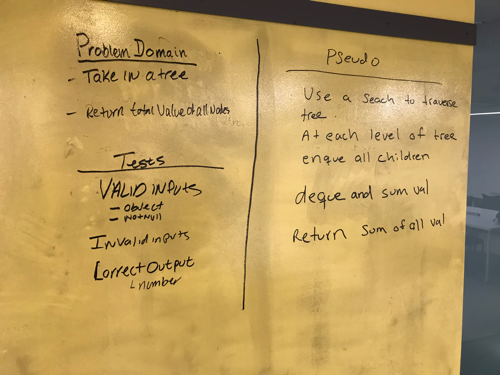 Problem Domain
- Take in a tree
- Return total Value of all Nodes
Tests
VALID inputs
- object
- NotNull
Invalid inputs
Correct Output
number
Pseudo
Use a Seach to traverse
tree.
At each level of tree
enque all children
deque and sum val
Return Sum of all val